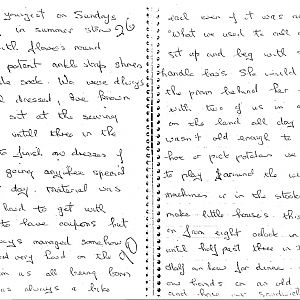 youngest on Sundays
in summer straw 26
with flowers round
patent ankle strap shoes
sock. We were always
dressed, I've known
sit at the sewing
until three in the
to finish our dresses if
going anywhere special
day. material was
hard to get with
to have coupons but
always managed somehow
very hard on the
as all being born
always a bike
each even if it was
what we used to call a
sit up and beg with
handle bars She would
the pram behind her
with two of us in
on the land all day
wasn't old enough to
hoe or pick potatoes we
to play around the
machines or in the
make little houses. this
from eight oclock in
until half past three in
Half an hour for dinner.
our hands on an old
and have our sandwich